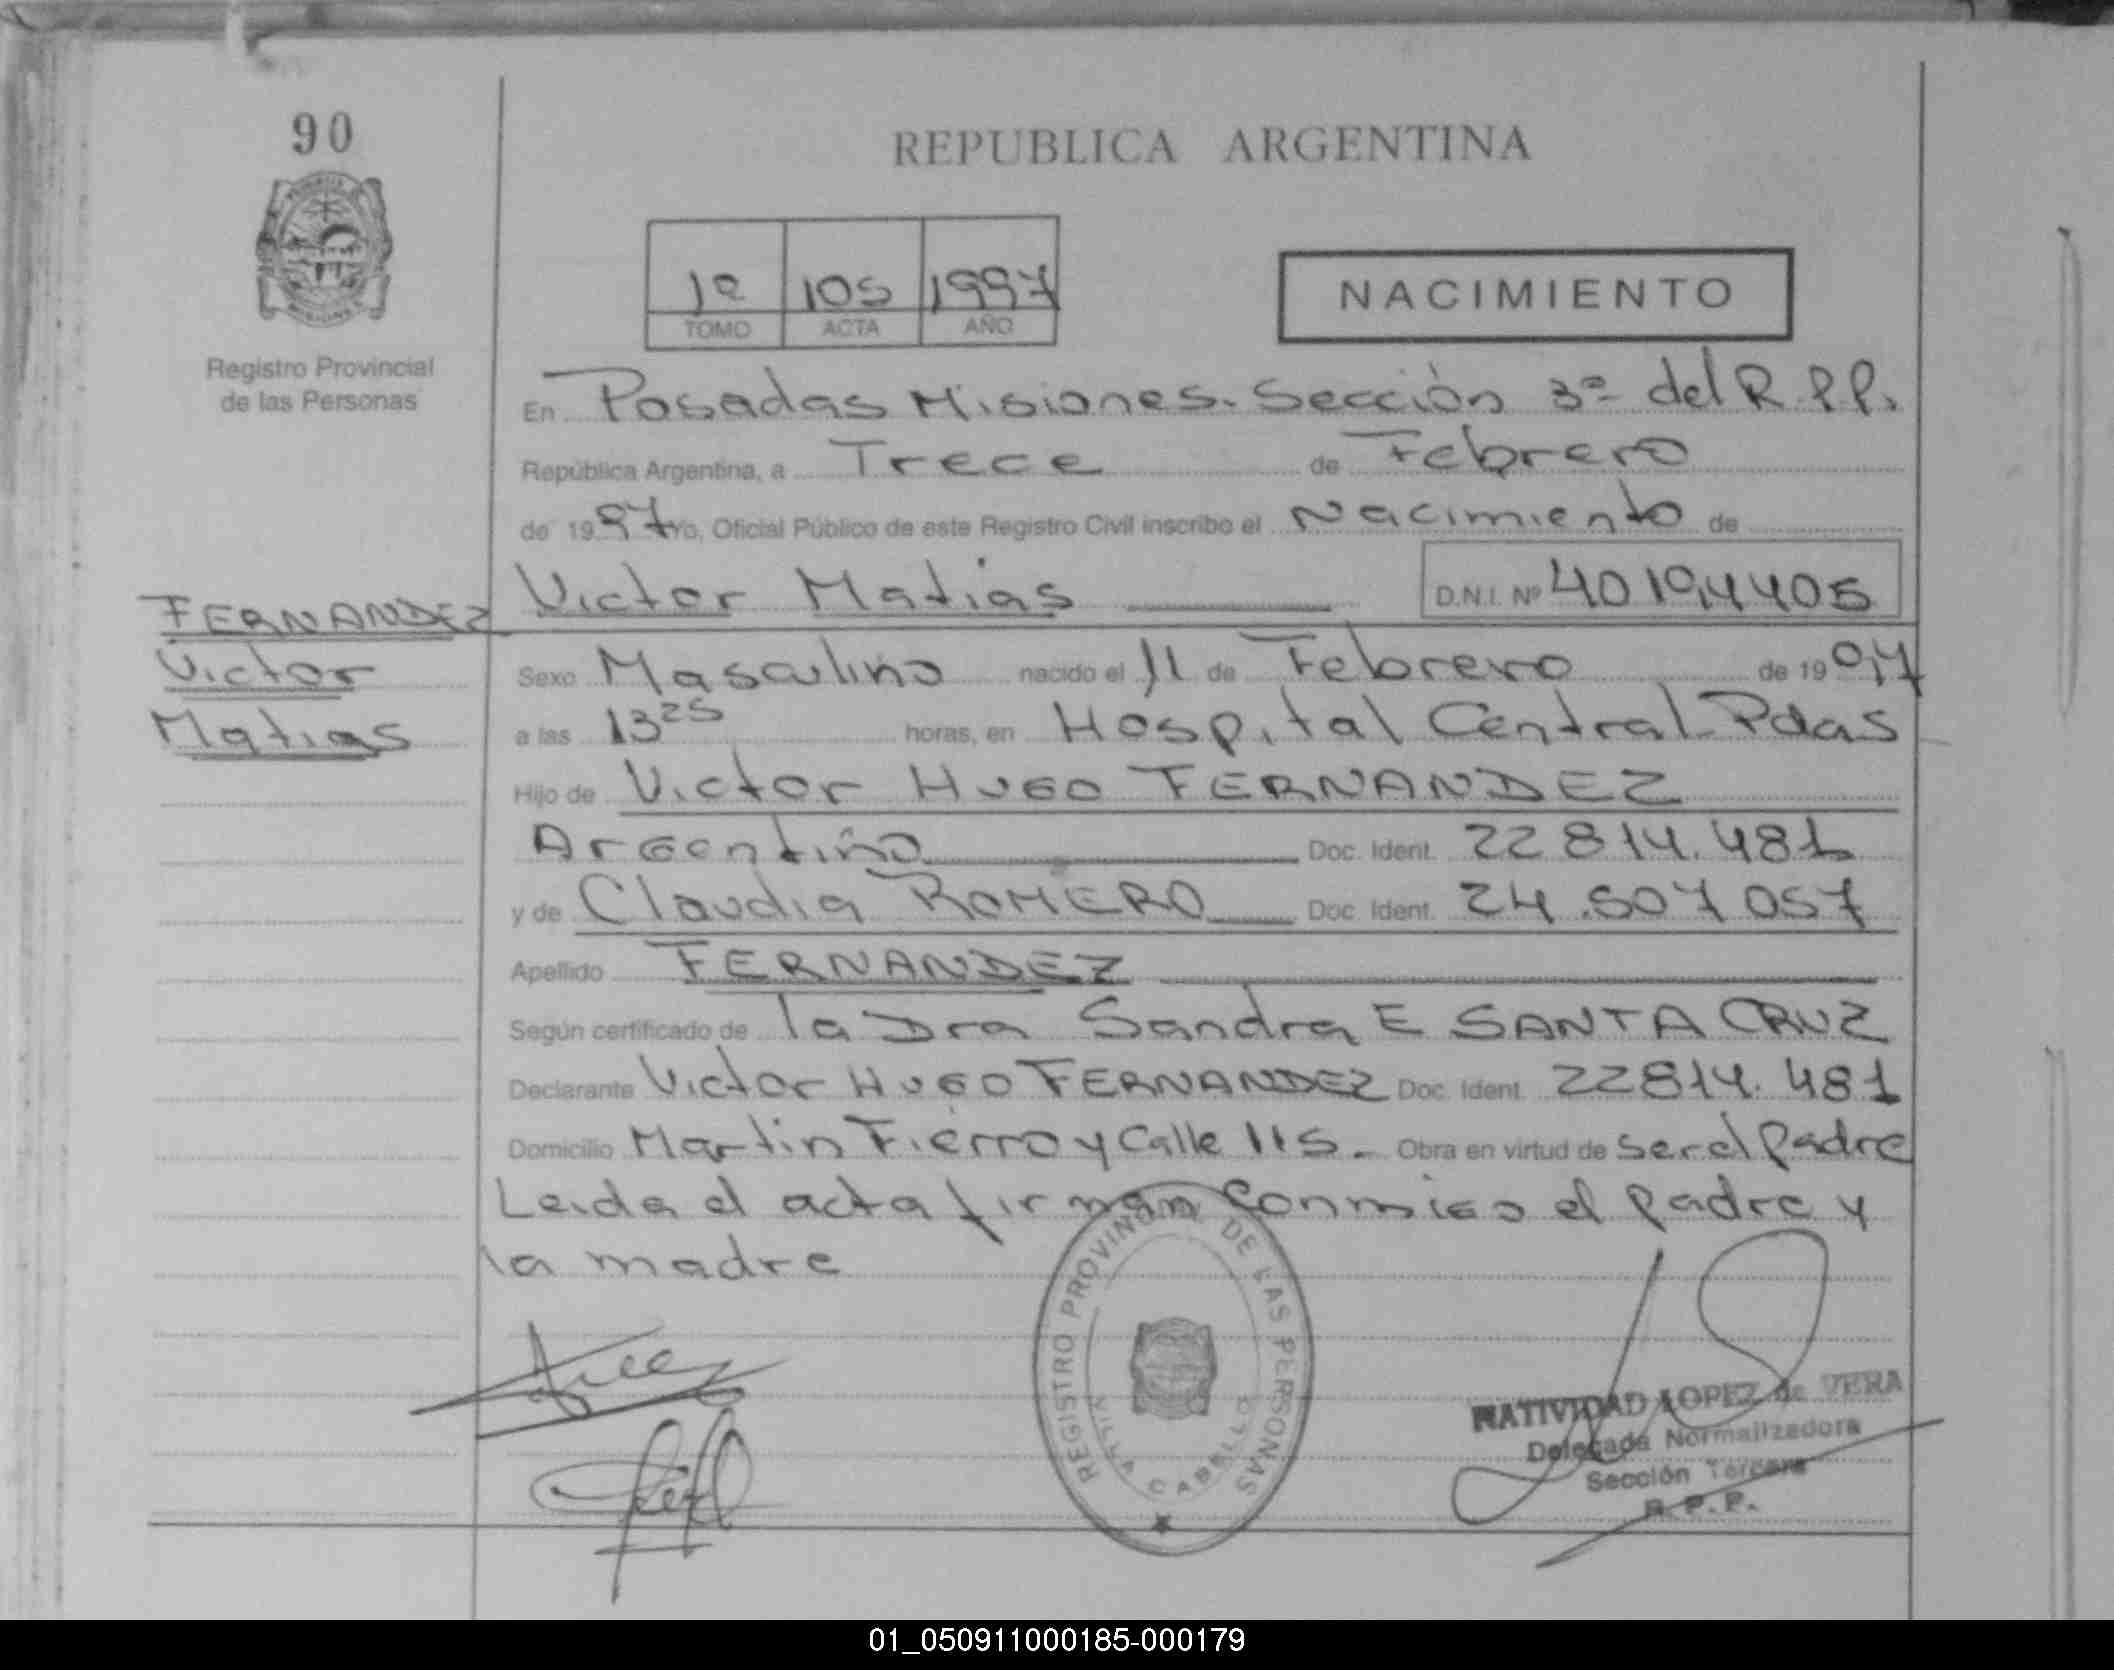 90
REPUBLICA ARGENTINA
Registro Provincial
de las Personas
1º 105 1997
TOMO ACTA AÑO
NACIMIENTO
En Posadas Misiones. Sección 3ª del R.P.P.
República Argentina, a Trece de Febrero
de 1997 Yo, Oficial Público de este Registro Civil inscribo el Nacimiento de
Victor Matias D.N.I. Nº 40194405
FERNANDEZ
Victor
Matias
Sexo Masculino nacido el 11 de Febrero de 1997
a las 13 25 horas, en Hospital Central Pdas
Hijo de Victor HUGO FERNANDEZ
Argentino Doc. Ident. 22 814.481
y de Claudia ROMERO Doc. Ident. 24.507 057
Apellido FERNANDEZ
Según certificado de la Dra Sandra E SANTA CRUZ
Declarante Victor HUGO FERNANDEZ Doc. Ident. 22814.481
Domicilio Martin Fierro y Calle 115. Obra en virtud de ser el padre
Leida el acta firman conmigo el padre y
la madre
REGISTRO PROVINCIAL DE LAS PERSONAS
VILLA CABELLO
NATIVIDAD LOPEZ de VERA
Delegada Normalizadora
Sección Tercera
R.P.P.
01_050911000185-000179